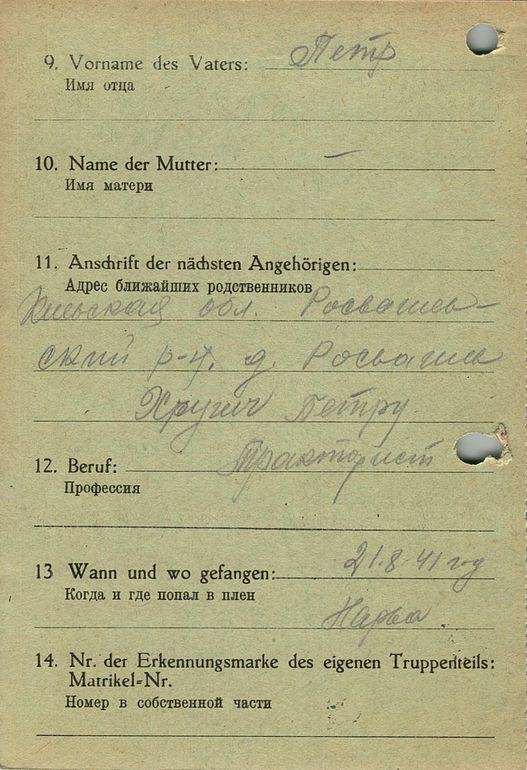 9. Vorname des Vaters: Петр
Имя отца
10. Name der Mutter: —
Имя матери
11. Anschrift der nächsten Angehörigen:
Адрес ближайших родственников
обл.
ский р-н. д.
Петру
12. Beruf: Тракторист
Профессия
13 Wann und wo gefangen: 21.8.41 год
Когда и где попал в плен
Нарва.
14. Nr. der Erkennungsmarke des eigenen Truppenteils:
Matrikel=Nr.
Номер в собственной части